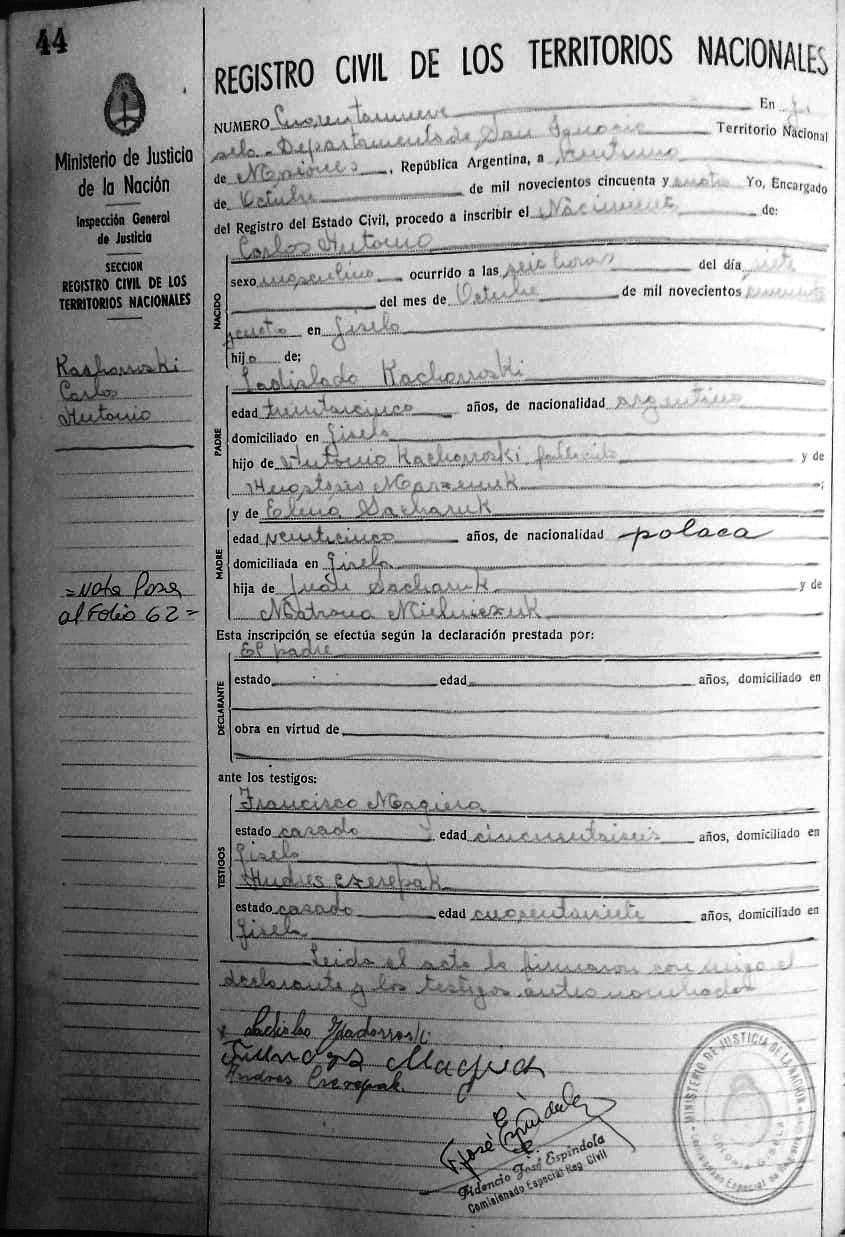 44
Ministerio de Justicia
de la Nación
Inspección General
de Justicia
SECCION
REGISTRO CIVIL DE LOS
TERRITORIOS NACIONALES
Kachorroski
Carlos
Antonio
=Nota Pose
al Folio 62=
REGISTRO CIVIL DE LOS TERRITORIOS NACIONALES
NUMERO Cuarentanueve En Gi
sela - Departamento de San Ignacio Territorio Nacional
de Misiones, República Argentina, a Veintiuno
de Octubre de mil novecientos cincuenta y cuatro Yo, Encargado
del Registro del Estado Civil, procedo a inscribir el Nacimiento de:
Carlos Antonio
NACIDO
sexo masculino ocurrido a las seis horas del día siete
del mes de Octubre de mil novecientos cincuenta
ycuatro en Gisela
hijo de;
PADRE
Ladislado Kachorroski
edad treintaicinco años, de nacionalidad argentino
domiciliado en Gisela
hijo de Antonio Kachorroski fallecido y de
Marzeniuk;
MADRE
y de Elena Sacharuk
edad veinticinco años, de nacionalidad polaca
domiciliada en Gisela
hija de Juan Sacharuk y de
Matrona Mielniczuk
Esta inscripción se efectúa según la declaración prestada por:
El padre
DECLARANTE
estado edad años, domiciliado en
obra en virtud de
ante los testigos:
TESTIGOS
Francisco Magiera
estado casado edad cincuentaiseis años, domiciliado en
Gisela
Andres Czerepak
estado casado edad cuarentaisiete años, domiciliado en
Gisela
Leida el acta la firmaron con migo el
declarante y los testigos antes nombrados
Andres Czerepak
F. José Espíndola
Fidencio José Espíndola
Comisionado Especial Reg. Civil
MINISTERIO DE JUSTICIA DE LA NACION
COLONIA GISELA